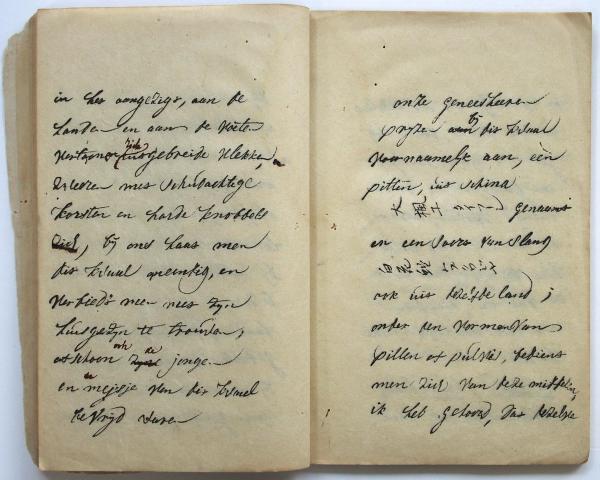 in het aangezigt, aan de
handen en aan de voeten
vertoonen zich uitgebreide vlekken,
zweeren met schubachtige
korsten en harde knobbels
zich, bij ons haat men
dit kwaal oneindig, en
verbiedt men met zijn
huisgezin te trouwen,
ofschoon ook de jonge
en meisje van dit kwaal
bevrijd waren
onze geneesheeren
prijzen bij dit kwaal
voornaamelijk aan, een
pitten, uit schina
大楓子 genaamt
en een soort van slang
ook uit dezelfde land;
onder den vormen van
pillen of pulvis, bedient
men zich van deze middelen,
ik heb gehoord, dat dezelfde